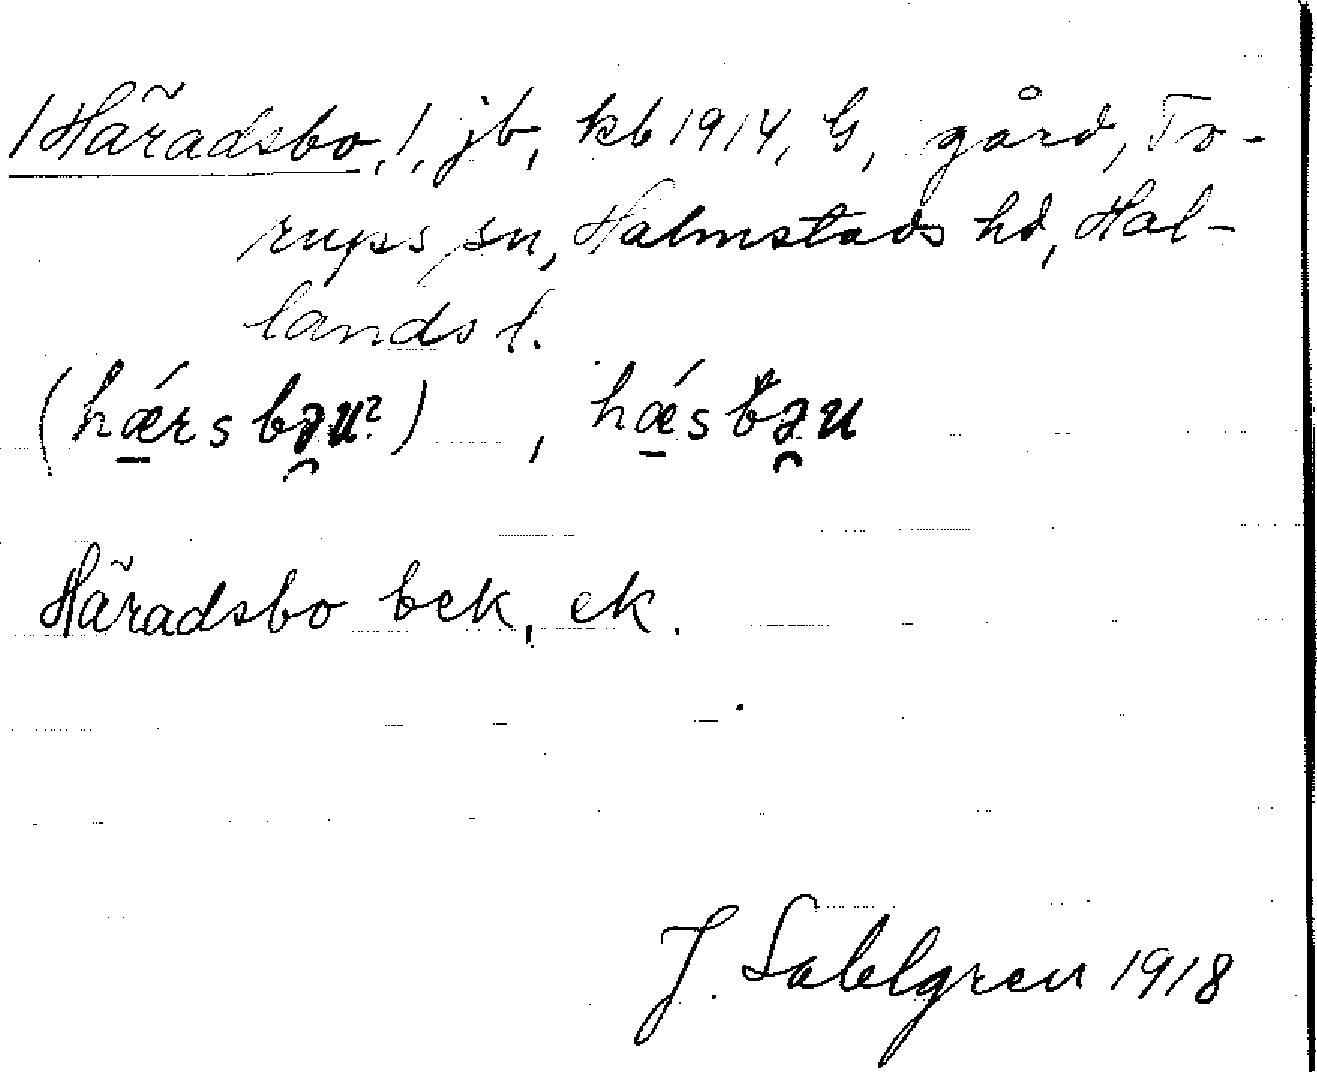 /Häradsbo, !, jb, kb 1914, G, gård, To-
rups sn, Halmstads hd, Hal-
lands l.
(hǽrsbəu²) , hǽsbəu
Häradsbo bek, ek.
J. Sahlgren 1918